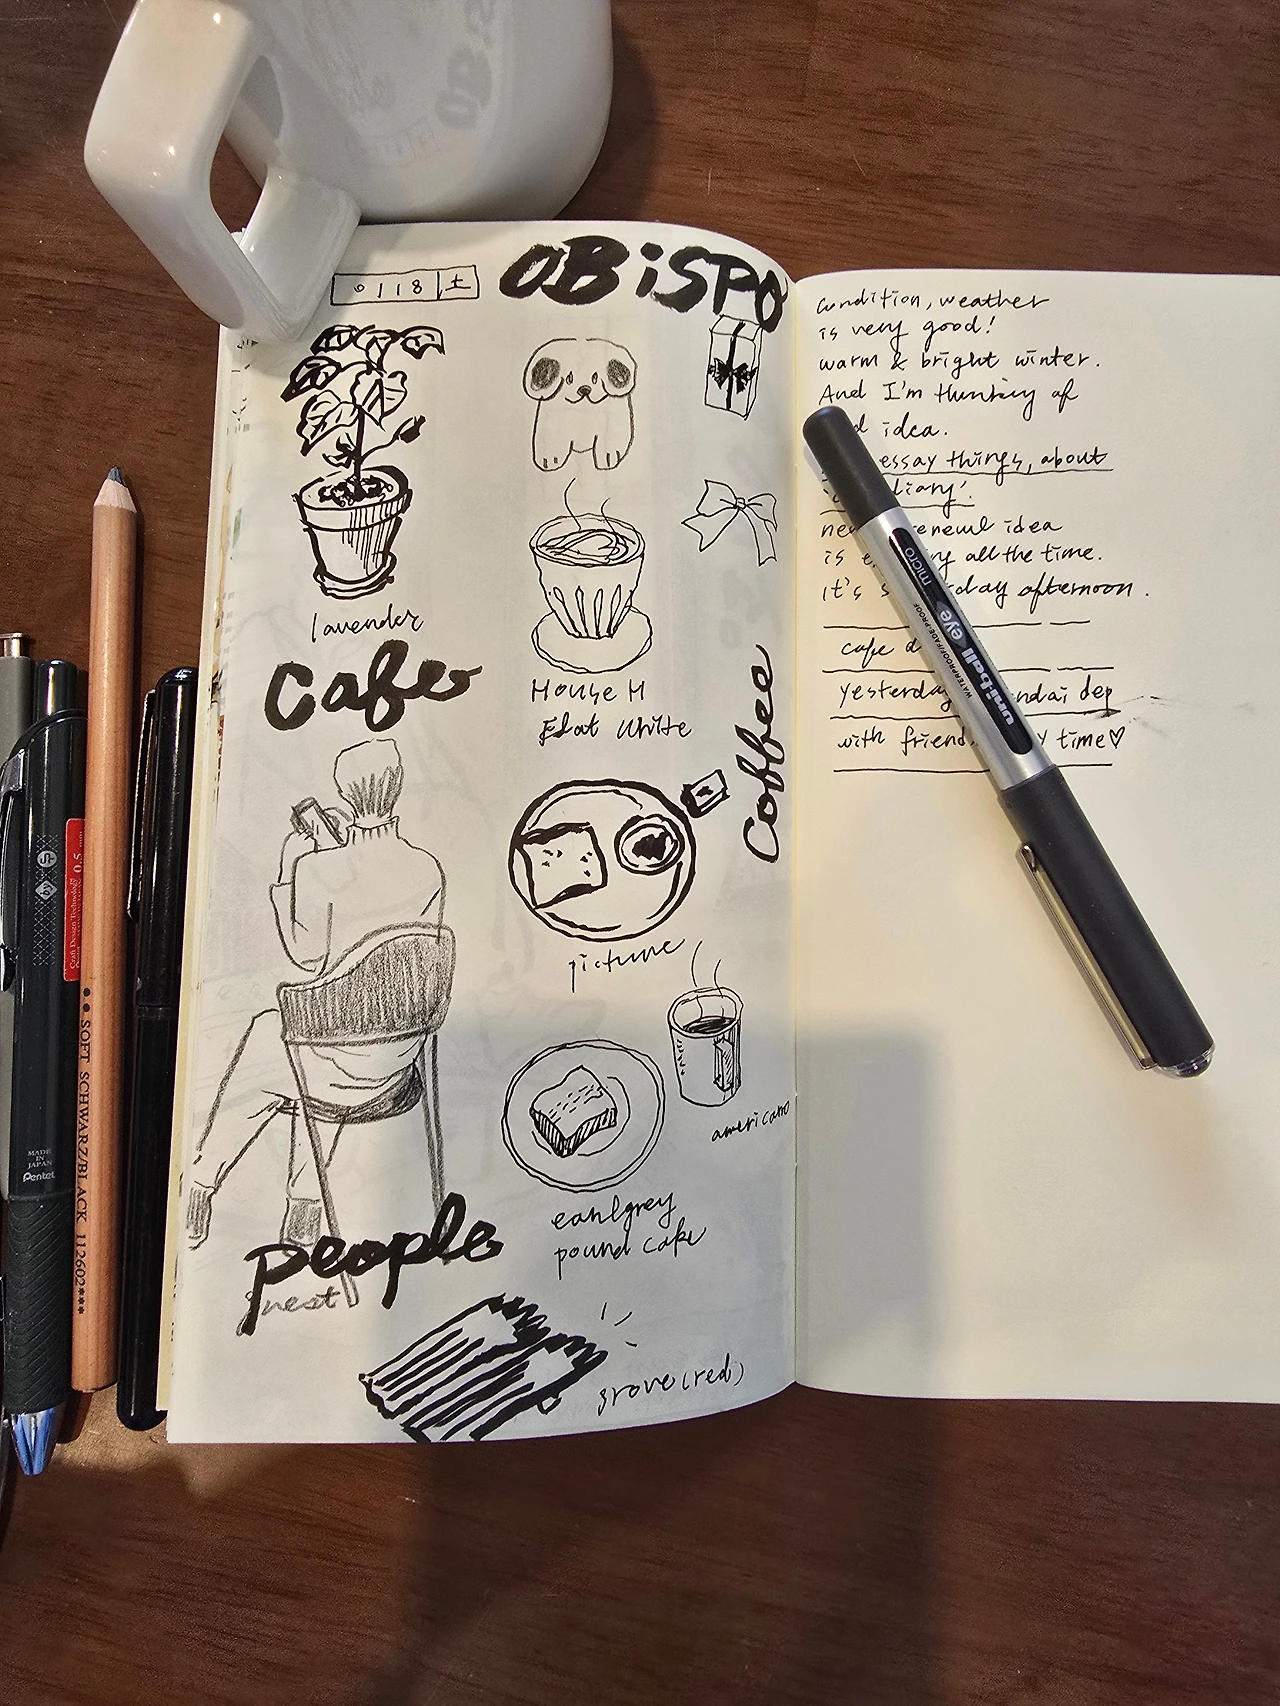 0118 土
OBiSPO
lavender
Cafe
House H
Flat White
Coffee
picture
americano
earlgrey
pound cake
people
guest
grove (red)
condition, weather
is very good!
warm & bright winter.
And I'm thinking of
idea.
essay things, about
diary'.
idea
is all the time.
it's afternoon.
cafe
yesterday dep
with friend time♡
uni-ball eye micro
WATERPROOF/FADE-PROOF
Craft Design Technology
0.5
MADE
IN
JAPAN
Pentel
SOFT SCHWARZ/BLACK 112602***